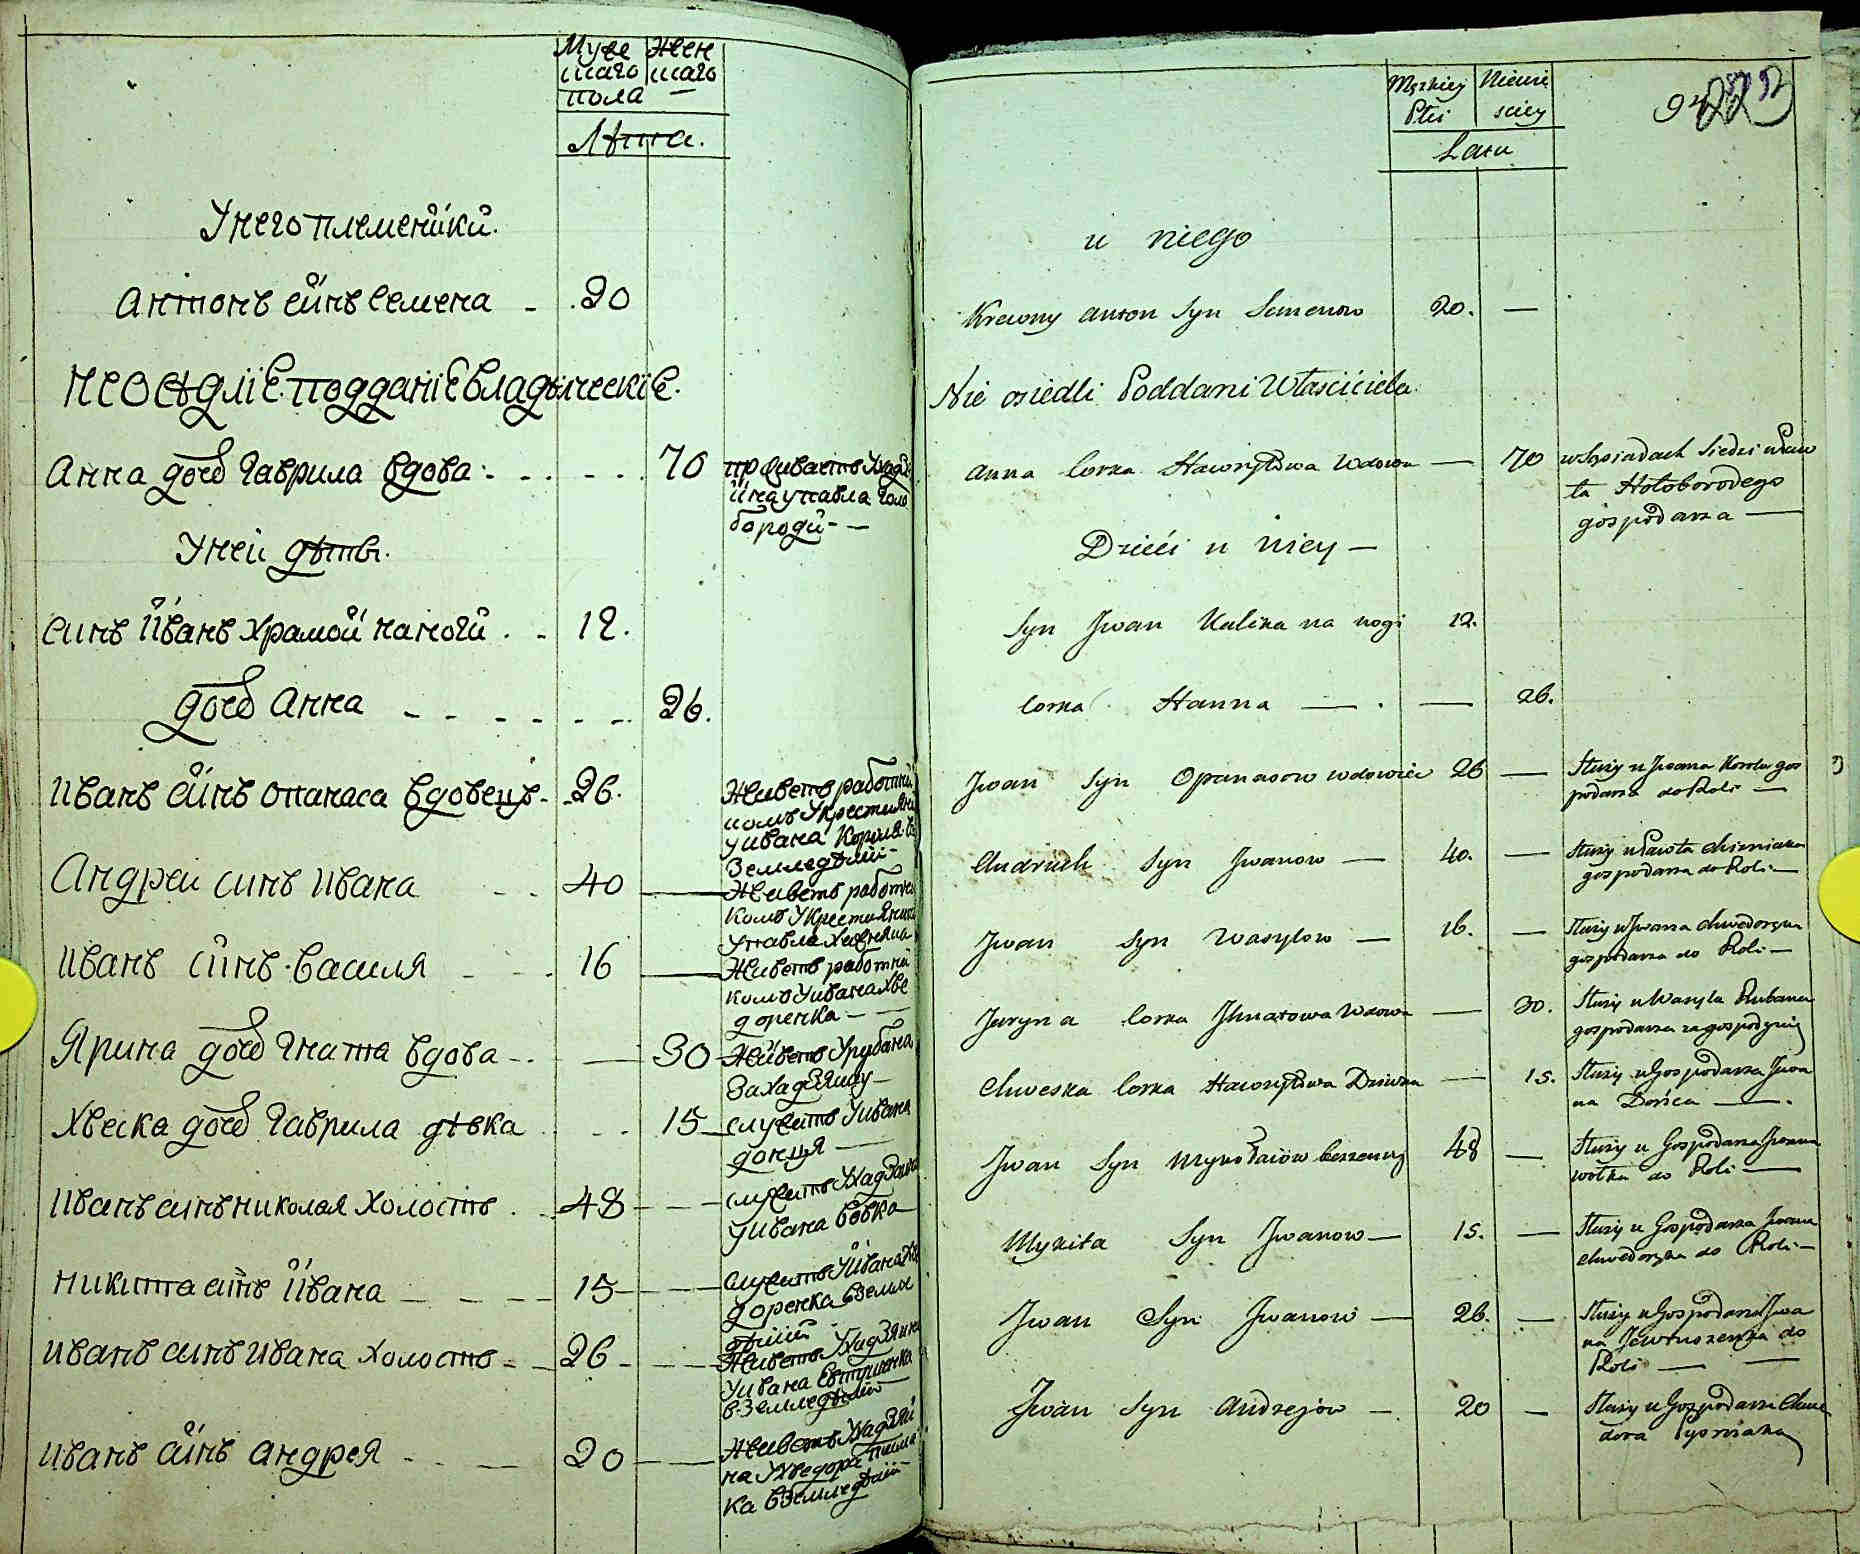 Муже Жен
скаго скаго
пола
Лѣта.
Унего племеники.
Антонъ синъ Семена 20
Неосѣдліе подданіе владѣлческіе.
Анна дочь Гаврила вдова 70 проживаетъ Ухадзя
ина упавла Голо
бороди
Уней дѣты.
синъ Иванъ Храмой наноги 12.
дочь Анна 26.
Иванъ синъ Опанаса вдовецъ 26. Живетъ работни
комъ Укрестиянина
Уивана Короля в
Земледѣлій
Андреи синъ ивана 40 Живетъ работни
комъ Укрестиянина
Упавла
Иванъ синъ василя 16 Живетъ работни
комъ Уивана Хве
доренка
Ярина дочь Гната вдова 30 Живетъ Урубана
Захадзяику
Хвеска дочь Гаврила дѣвка 15 служитъ Уивана
донця
Иванъ синъ николая Холостъ 48 служитъ Ухадзаина
Уивана вовка
никита синъ Ивана 15 служитъ Уивана Хве
доренка вземле
дѣлій
Иванъ синъ Ивана Холостъ 26 Живетъ Ухадзяина
Уивана Евтушенка
вЗемледѣлій
Иванъ синъ андрея 20 Живетъ Ухадзяй
на Ухведора
ка вЗемледѣлій
Męzkiey Niewie
Płci sciey
Latu
u niego
Krewny Anton Syn Semenow 20. —
Nie osiedli Poddani Właściciela
Anna Corka Hawryłowa Wdowa — 70 w Sąsiadach Siedzi u Paw
ła Hołoborodego
gospodarza —
Dzieći u niey —
Syn Jwan Kalika na nogi 12.
Corka Hanna — 26.
Jwan Syn Opanasow wdowiec 26 — Służy u Jwana Korola gos
podarza do Roli —
Andruch Syn Jwanow — 40. — Służy u Pawła
gospodarza do Roli —
Jwan Syn Wasylow — 16. — Służy u Jwana Chwedorenka
gospodarza do Roli —
Jaryna Corka Jhnatowa Wdowa — 30. Służy u Wasyla Rubana
gospodarza za gospodynię
Chweska Corka Hawryłowa Dziewka — 15. Służy u Gospodarza Jwa
na Dońca —
Jwan Syn Mykołaiow bezzenny 48 — Służy u Gospodarza Jwana
Wołka do Roli —
Mykita Syn Jwanow — 15. — Służy u Gospodarza Jwana
Chwedorenka do Roli —
Jwan Syn Jwanow — 26. — Służy u Gospodarza Jwa
na Jewtuszenka do
Roli —
Jwan Syn Andrzejow — 20 — Służy u Gospodarza Chwe
dora